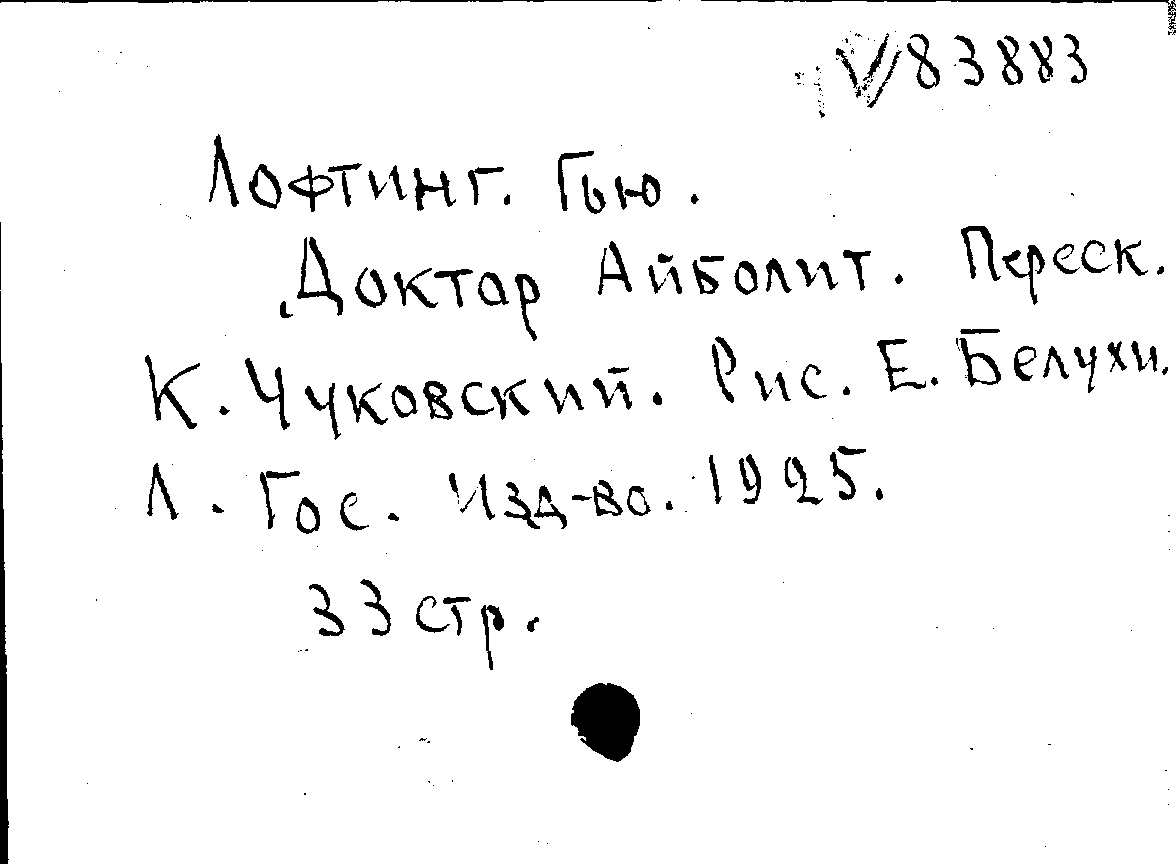 V/83883
Лофтинг. Гью.
Доктор Айболит. Переск.
К. Чуковский. Рис. Е. Белухи.
Л. Гос. Изд-во. 1925.
33 стр.